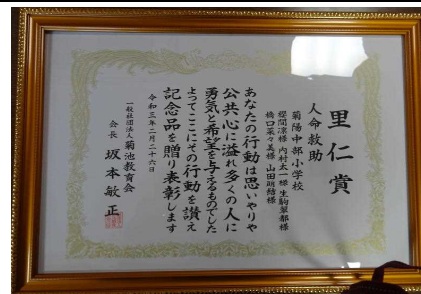 里仁賞
人命救助
菊陽中部小学校
櫻間凜様 内村太一様 生駒翠都様
橋口菜々美様 山田明結様
あなたの行動は思いやりや
公共心に溢れ多くの人に
勇気と希望を与えるものでした
よってここにその行動を讃え
記念品を贈り表彰します
令和三年二月二十六日
一般社団法人 菊池教育会
会長 坂本敏正